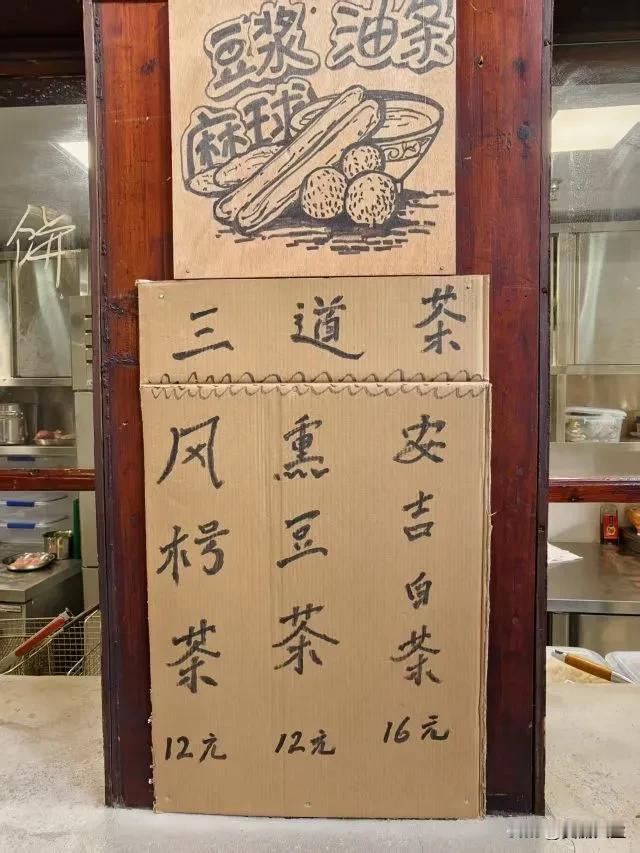 豆浆 油条
麻球
饼
三道茶
风枵茶
12元
熏豆茶
12元
安吉白茶
16元